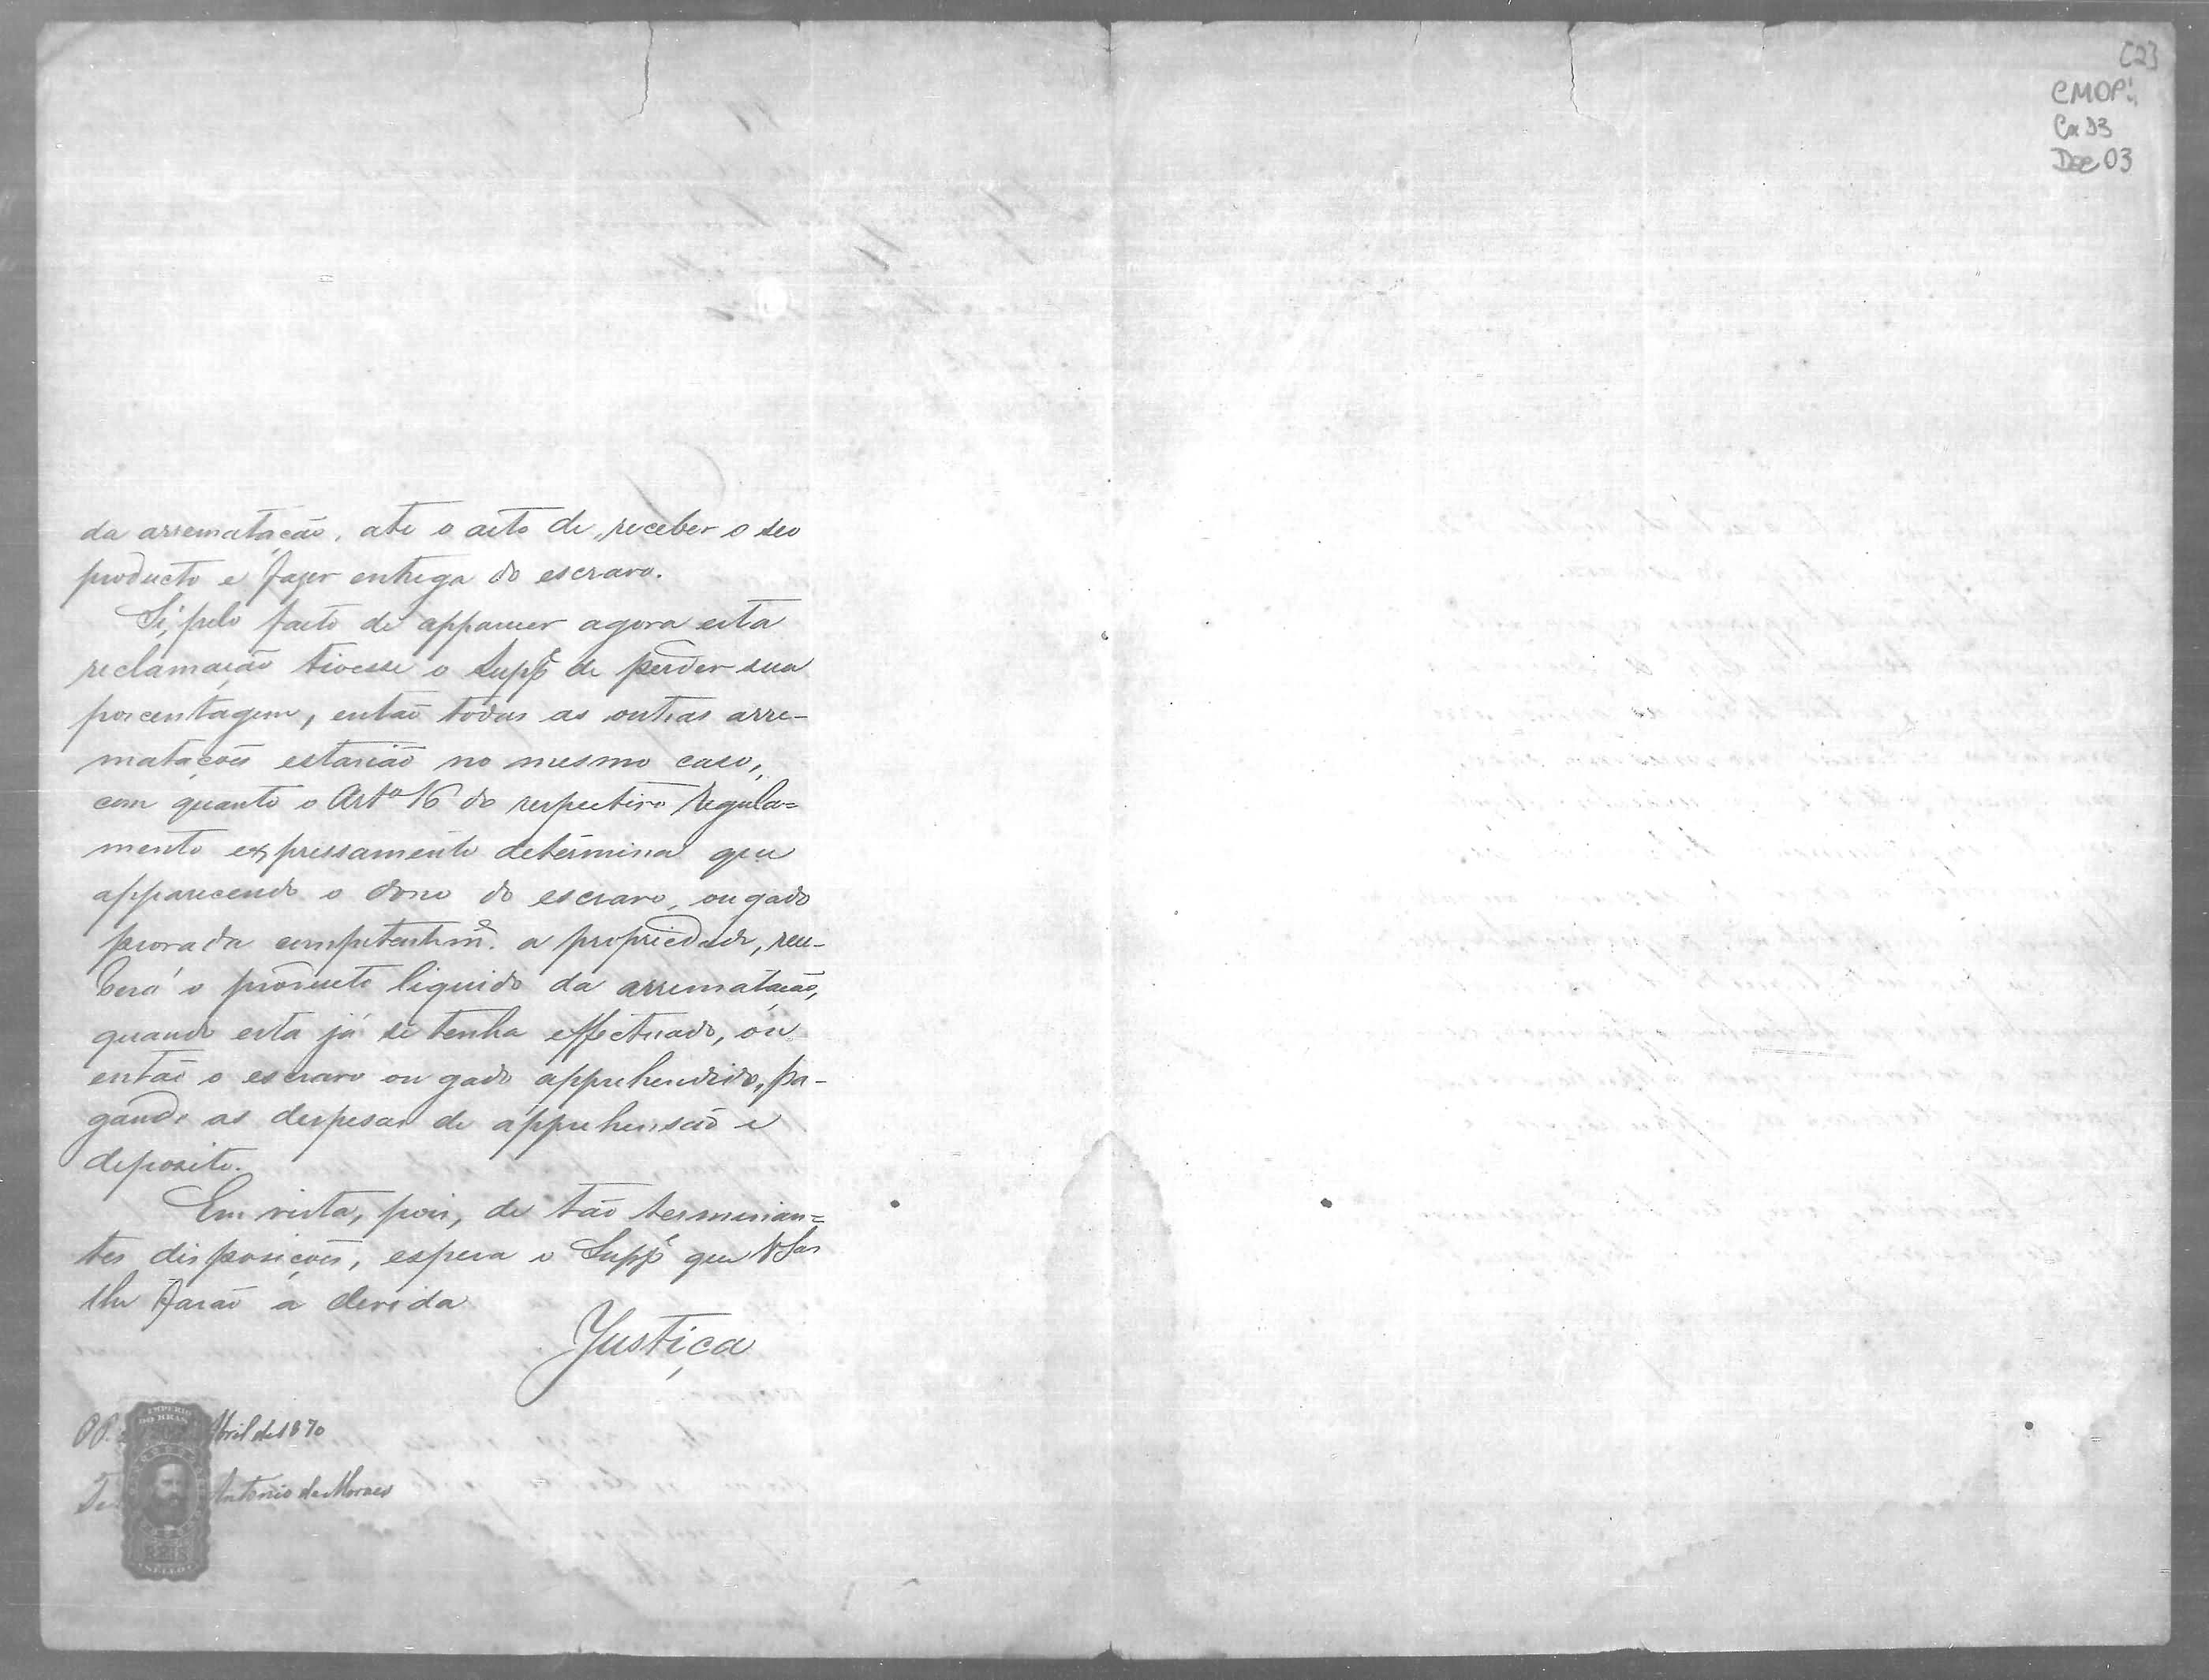 [2]
CMOP:
Cx 33
Doc 03
da arrematação, ate o acto de receber o seo
producto e fazer entrega do escravo.
Si, pelo facto de apparecer agora esta
reclamação tivesse o Suppe de perder sua
porcentagem, então todas as outras arre-
matações estarião no mesmo caso,
com quanto o Arto 16 do respectivo Regula=
mento expressamente determina que
apparecendo o dono do escravo, ou gado
provada competentime. a propriedade, rece-
berá o producto liquido da arrematação,
quando esta já se tenha effectuado, ou
então o escravo ou gado apprehendido, pa-
gando as despesas de apprehensão e
deposito.
Em vista, pois, de tão terminan=
tes disposições, espera o Suppe que VSas
lhe farão a devida
Justiça
IMPERIO
DO BRAS
Abril de 1870
Antonio de Moraes
SELLO